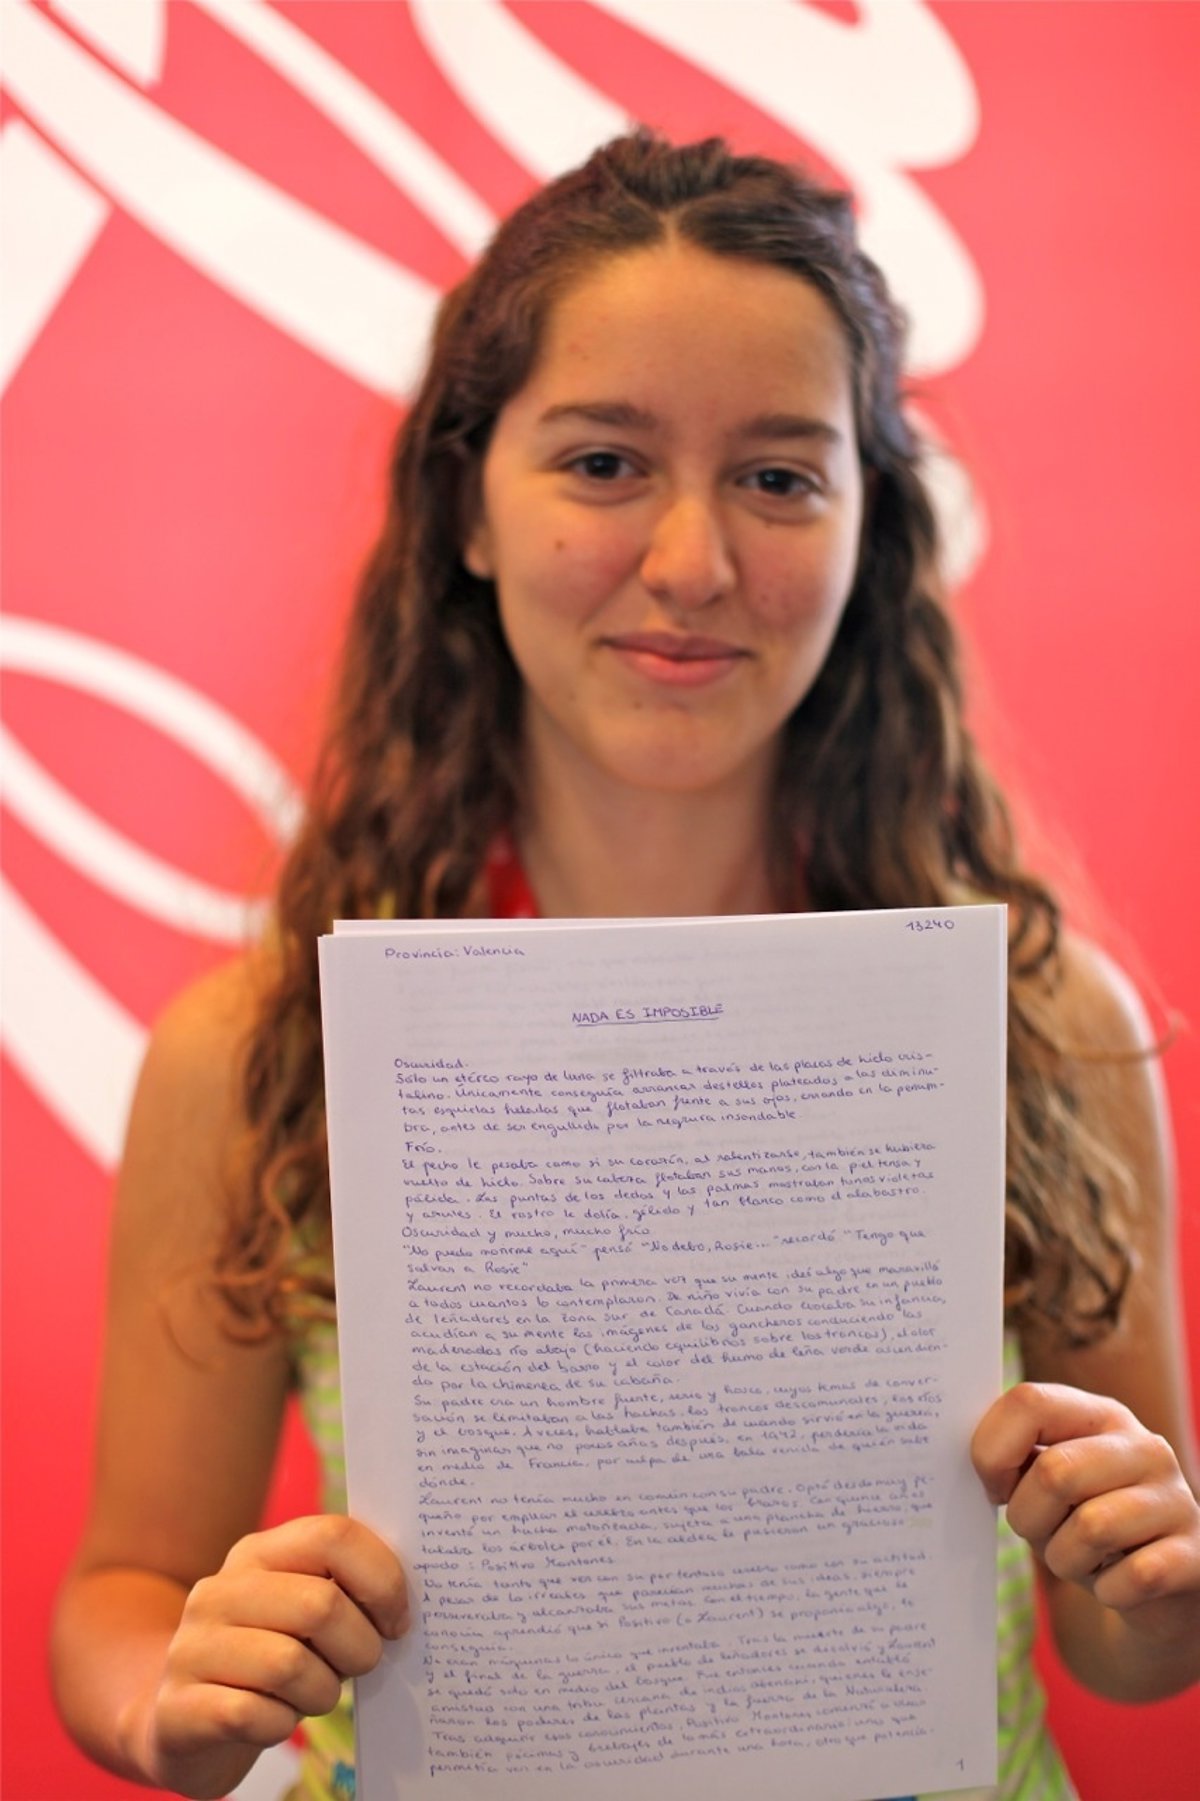 13240
Provincia: Valencia
NADA ES IMPOSIBLE
Oscuridad.
Sólo un etéreo rayo de luna se filtraba a través de las placas de hielo cris-
talino. Únicamente conseguía arrancar destellos plateados a las diminu-
tas esquirlas heladas que flotaban frente a sus ojos, errando en la penum-
bra, antes de ser engullida por la negrura insondable.
Frío.
El pecho le pesaba como si su corazón, al ralentizarse, también se hubiera
vuelto de hielo. Sobre su cabeza flotaban sus manos, con la piel tensa y
pálida. Las puntas de los dedos y las palmas mostraban tonos violetas
y azules. El rostro le dolía, gélido y tan blanco como el alabastro.
Oscuridad y mucho, mucho frío.
"No puedo morirme aquí" pensó "No debo, Rosie..." recordó "Tengo que
salvar a Rosie"
Laurent no recordaba la primera vez que su mente ideó algo que maravilló
a todos cuantos lo contemplaron. De niño vivía con su padre en un pueblo
de leñadores en la zona sur de Canadá. Cuando evocaba su infancia,
acudían a su mente las imágenes de los gancheros conduciendo las
maderadas río abajo (haciendo equilibrios sobre los troncos), el olor
de la estación del barro y el color del humo de leña verde ascendien-
do por la chimenea de su cabaña.
Su padre era un hombre fuerte, serio y hosco, cuyos temas de conver-
sación se limitaban a las hachas, los troncos descomunales, los ríos
y el bosque. A veces, hablaba también de cuando sirvió en la guerra,
sin imaginar que no pocos años después, en 1942, perdería la vida
en medio de Francia, por culpa de una bala venida de quién sabe
dónde.
Laurent no tenía mucho en común con su padre. Optó desde muy pe-
queño por emplear el cerebro antes que los brazos. Con quince años
inventó un hacha motorizada, sujeta a una plancha de hierro, que
talaba los árboles por él. En la aldea le pusieron un gracioso
apodo: Positivo Montones.
No tenía tanto que ver con su portentoso cerebro como con su actitud.
A pesar de lo irreales que parecían muchas de sus ideas, siempre
perseveraba y alcanzaba sus metas. Con el tiempo, la gente que le
conocía aprendió que si Positivo (o Laurent) se proponía algo, lo
conseguía.
No eran máquinas lo único que inventaba. Tras la muerte de su padre
y el final de la guerra, el pueblo de leñadores se disolvió y Laurent
se quedó solo en medio del bosque. Fue entonces cuando entabló
amistad con una tribu cercana de indios abenaki, quienes le ense-
ñaron los poderes de las plantas y la fuerza de la Naturaleza.
Tras adquirir esos conocimientos, Positivo Montones comenzó a crear
también pócimas y brebajes de lo más extraordinarios: uno que
permitía ver en la oscuridad durante una hora, otro que potencia-
1